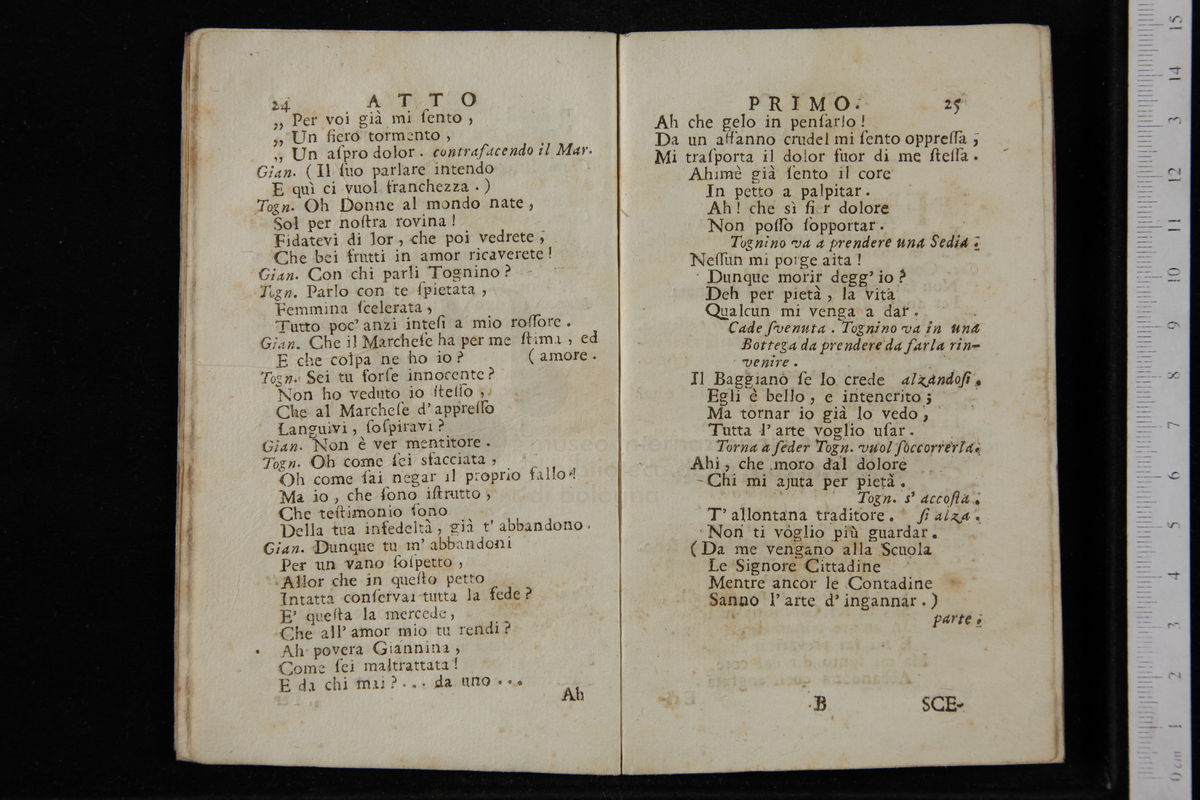 24 ATTO
„ Per voi già mi ſento ,
„ Un fiero tormento ,
„ Un aſpro dolor . contrafacendo il Mar.
Gian. ( Il ſuo parlare intendo
E quì ci vuol franchezza . )
Togn. Oh Donne al mondo nate ,
Sol per noſtra rovina !
Fidatevi di lor , che poi vedrete ,
Che bei frutti in amor ricaverete !
Gian. Con chi parli Tognino ?
Togn. Parlo con te ſpietata ,
Femmina ſcelerata ,
Tutto poc' anzi inteſi a mio roſſore .
Gian. Che il Marcheſe ha per me ſtima , ed
E che colpa ne ho io ? ( amore .
Togn. Sei tu forſe innocente ?
Non ho veduto io ſteſſo ,
Che al Marcheſe d' appreſſo
Languivi , ſoſpiravi ?
Gian. Non è ver mentitore .
Togn. Oh come ſei sfacciata ,
Oh come ſai negar il proprio fallo !
Ma io , che ſono iſtrutto ,
Che teſtimonio ſono
Della tua infedeltà , già t' abbandono .
Gian. Dunque tu m' abbandoni
Per un vano ſoſpetto ,
Allor che in queſto petto
Intatta conſervai tutta la fede ?
E' queſta la mercede ,
Che all' amor mio tu rendi ?
Ah povera Giannina ,
Come ſei maltrattata !
E da chi mai ? . . . da uno . . .
Ah
PRIMO. 25
Ah che gelo in penſarlo !
Da un affanno crudel mi ſento oppreſſa ,
Mi traſporta il dolor fuor di me ſteſſa .
Ahimè già ſento il core
In petto a palpitar .
Ah ! che sì fi r dolore
Non poſſo ſopportar .
Tognino va a prendere una Sedia .
Neſſun mi porge aita !
Dunque morir degg' io ?
Deh per pietà , la vita
Qualcun mi venga a dar .
Cade ſvenuta . Tognino va in una
Bottega da prendere da farla rin-
venire .
Il Baggiano ſe lo crede alzandoſi .
Egli è bello , e intenerito ;
Ma tornar io già lo vedo ,
Tutta l' arte voglio uſar .
Torna a ſeder Togn. vuol ſoccorrerla .
Ahi , che moro dal dolore
Chi mi ajuta per pietà .
Togn. s' accoſta .
T' allontana traditore . ſi alza .
Non ti voglio più guardar .
( Da me vengano alla Scuola
Le Signore Cittadine
Mentre ancor le Contadine
Sanno l' arte d' ingannar . )
parte .
B SCE-
15
14
13
12
11
10
9
8
7
6
5
4
3
2
1
0 cm